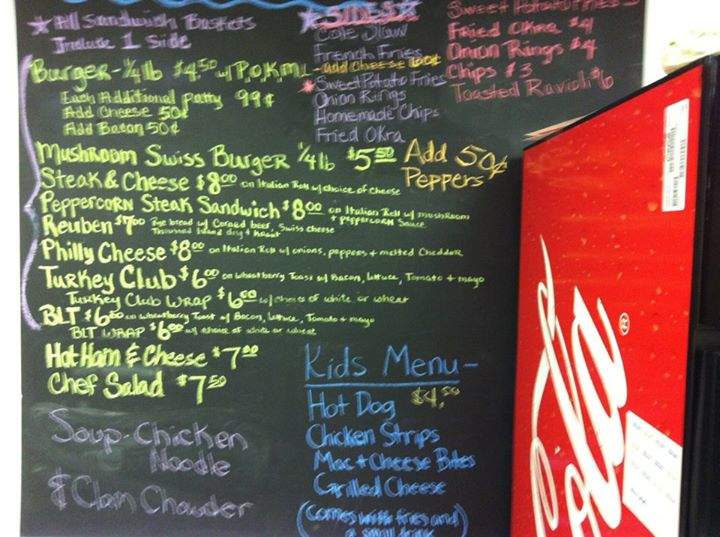 * All Sandwich Baskets
Include 1 Side
Burger - 1/4 lb $4.50 w/ P,O,K,M,L
Each Additional patty 99¢
Add Cheese 50¢
Add Bacon 50¢
Mushroom Swiss Burger 1/4 lb $5.50
Add 50¢
Peppers
Steak & Cheese $8.00 on Italian Roll w/ choice of cheese
Peppercorn Steak Sandwich $8.00 on Italian Roll w/ mushroom
+ peppercorn Sauce
Reuben $7.00 Rye bread w/ Corned beef, Swiss cheese
Thousand Island + Kraut
Philly Cheese $8.00 on Italian Roll w/ onions, peppers + melted Cheddar
Turkey Club $6.00 on wheatberry Toast w/ Bacon, Lettuce, Tomato + mayo
Turkey Club Wrap $6.00 w/ choice of white or wheat
BLT $6.00 on wheatberry Toast w/ Bacon, Lettuce, Tomato + mayo
BLT Wrap $6.00 w/ choice of white or wheat
Hot Ham & Cheese $7.00
Chef Salad $7.50
Soup - Chicken
Noodle
& Clam Chowder
* SIDES *
Cole Slaw
French Fries
- add Cheese
* Sweet Potato Fries
Onion Rings
Homemade Chips
Fried Okra
Sweet Potato Fries
Fried Okra $4
Onion Rings $4
Chips $3
Toasted Ravioli $6
Kids Menu -
Hot Dog $4.50
Chicken Strips
Mac + Cheese Bites
Grilled Cheese
(comes with fries and
a small drink
Cola ®